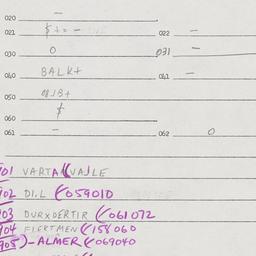 020 –
021 $ + = – 022 –
030 0 031 –
040 BALK+ 041 –
050
$
060
061 – 062 0
701 VARTA
702 DI.L (059010
703 DURXDERTIR (061072
704 FIEKTMEN (158060
705)-ALMER (069040